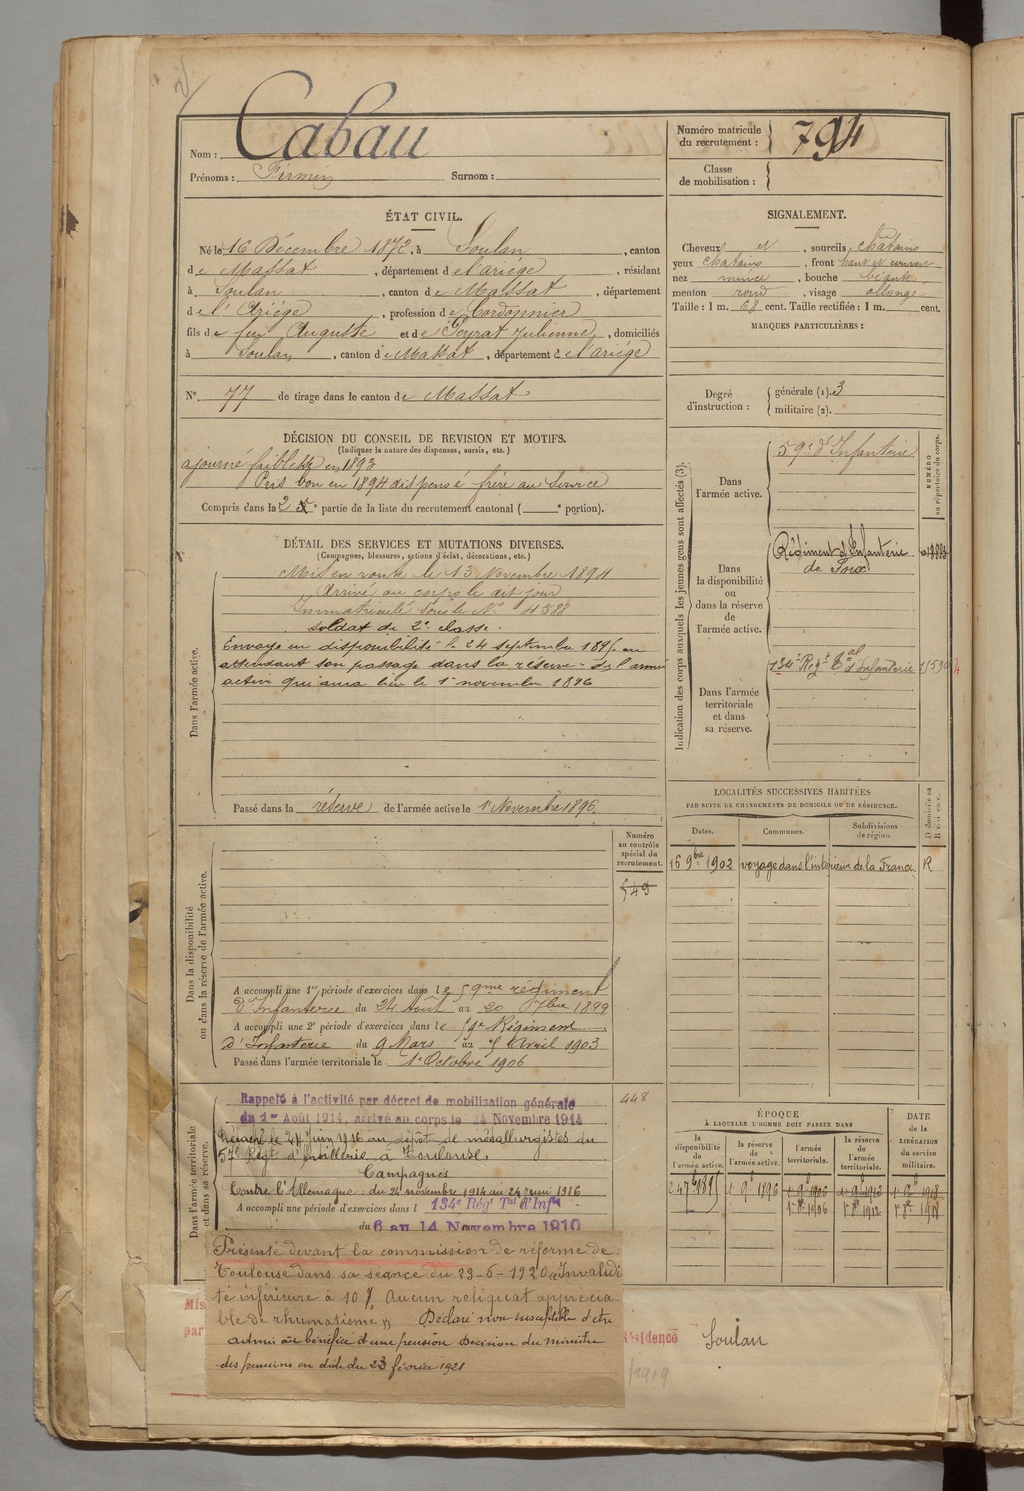 Nom : Cabau
Prénoms : Firmin Surnom :
Numéro matricule du recrutement : 794
Classe de mobilisation :
ÉTAT CIVIL.
Né le 16 Décembre 1872, à Soulan, canton
de Massat, département de l'Ariège, résidant
à Soulan, canton de Massat, département
de l'Ariège, profession de Cordonnier
fils de feu Auguste et de Peyrat Julienne, domiciliés
à Soulan, canton de Massat, département de l'Ariège
N° 77 de tirage dans le canton de Massat
SIGNALEMENT.
Cheveux et, sourcils chatains
yeux chatains, front haut et couvert
nez mince, bouche béante
menton rond, visage allongé
Taille : 1 m. 68 cent. Taille rectifiée : 1 m. cent.
MARQUES PARTICULIÈRES :
Degré d'instruction : générale (1). 3
militaire (2).
DÉCISION DU CONSEIL DE REVISION ET MOTIFS.
(Indiquer la nature des dispenses, sursis, etc.)
ajourné faiblesse en 1893
Pris bon en 1894 dispensé frère au Service
Compris dans la 2e partie de la liste du recrutement cantonal ( e portion).
DÉTAIL DES SERVICES ET MUTATIONS DIVERSES.
(Campagnes, blessures, actions d'éclat, décorations, etc.)
Dans l'armée active.
Mis en route le 13 Novembre 1894
Arrivé au corps le dit jour
Immatriculé sous le N° 4588
soldat de 2e classe.
Envoyé en disponibilité le 24 septembre 1895 en
attendant son passage dans la réserve de l'armée
active qui aura lieu le 1er novembre 1896
Passé dans la réserve de l'armée active le 1er Novembre 1896.
Indication des corps auxquels les jeunes gens sont affectés (3).
NUMÉRO au répertoire du corps.
Dans l'armée active.
59e d'Infanterie
Dans la disponibilité ou dans la réserve de l'armée active.
Régiment d'Infanterie
de Foix
Dans l'armée territoriale et dans sa réserve.
134e Régt Tal d'Infanterie
LOCALITÉS SUCCESSIVES HABITÉES
PAR SUITE DE CHANGEMENTS DE DOMICILE OU DE RÉSIDENCE.
Dates. Communes. Subdivisions de région. D domicile ou R résidence.
16 9bre 1902 voyage dans l'intérieur de la France R
Dans la disponibilité ou dans la réserve de l'armée active.
Numéro au contrôle spécial du recrutement.
549
A accompli une 1re période d'exercices dans le 59me régiment
d'Infanterie du 24 Août au 20 7bre 1899
A accompli une 2e période d'exercices dans le 59e Régiment
d'Infanterie du 9 Mars au 5 Avril 1903
Passé dans l'armée territoriale le 1er Octobre 1906
448
Dans l'armée territoriale et dans sa réserve.
Rappelé à l'activité par décret de mobilisation générale
du 1er Août 1914, arrivé au corps le 24 Novembre 1914
Détaché le 24 juin 1916 au dépôt de métallurgistes du
57e Régt d'artillerie à Toulouse.
Campagnes
Contre l'Allemagne : du 24 novembre 1914 au 24 juin 1916
A accompli une période d'exercices dans l 134e Régt Tal d'Inftie
du 6 au 14 Novembre 1910
ÉPOQUE
À LAQUELLE L'HOMME DOIT PASSER DANS
la disponibilité de l'armée active. la réserve de l'armée active. l'armée territoriale. la réserve de l'armée territoriale. DATE de la LIBÉRATION du service militaire.
24 7bre 1895 1er 9bre 1896 1er 9bre 1906 1er 9bre 1912 1er 9bre 1918
1er 8bre 1906 1er 8bre 1912 1er 8bre 1918
Présenté devant la commission de réforme de
Toulouse dans sa séance du 23-6-1920 « Invalidi
té inférieure à 10 % Aucun reliquat apprécia
ble de rhumatisme » Déclaré non susceptible d'être
admis au bénéfice d'une pension Décision du ministre
des pensions en date du 23 février 1921
Mis
par
Résidence Soulan
/1919